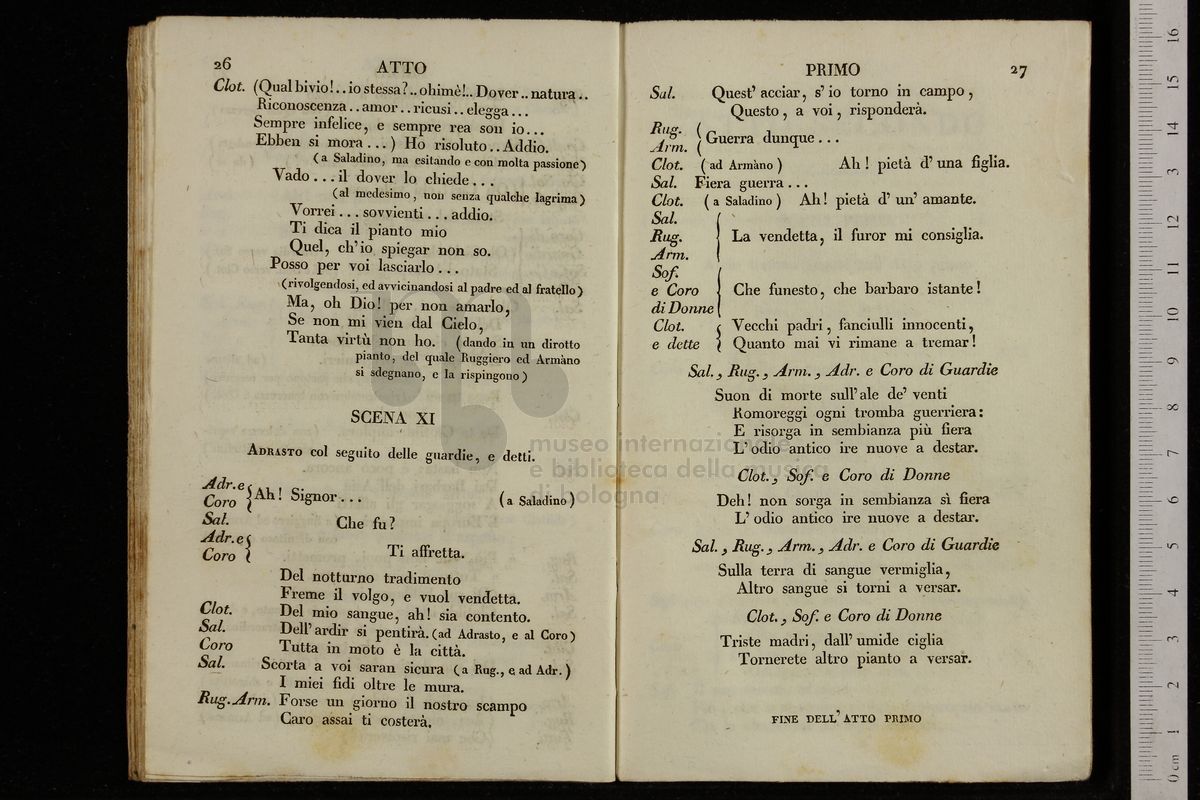 26
ATTO
Clot. (Qual bivio!..io stessa?..ohimè!..Dover..natura..
Riconoscenza..amor..ricusi..elegga...
Sempre infelice, e sempre rea son io...
Ebben si mora...) Ho risoluto..Addio.
(a Saladino, ma esitando e con molta passione)
Vado...il dover lo chiede...
(al medesimo, non senza qualche lagrima)
Vorrei...sovvienti...addio.
Ti dica il pianto mio
Quel, ch'io spiegar non so.
Posso per voi lasciarlo...
(rivolgendosi, ed avvicinandosi al padre ed al fratello)
Ma, oh Dio! per non amarlo,
Se non mi vien dal Cielo,
Tanta virtù non ho. (dando in un dirotto
pianto, del quale Ruggiero ed Armàno
si sdegnano, e la rispingono)
SCENA XI
ADRASTO col seguito delle guardie, e detti.
Adr. e
Coro } Ah! Signor... (a Saladino)
Sal. Che fu?
Adr. e
Coro } Ti affretta.
Del notturno tradimento
Freme il volgo, e vuol vendetta.
Clot. Del mio sangue, ah! sia contento.
Sal. Dell'ardir si pentirà. (ad Adrasto, e al Coro)
Coro Tutta in moto è la città.
Sal. Scorta a voi saran sicura (a Rug., e ad Adr.)
I miei fidi oltre le mura.
Rug. Arm. Forse un giorno il nostro scampo
Caro assai ti costerà.
PRIMO
27
Sal. Quest' acciar, s'io torno in campo,
Questo, a voi, risponderà.
Rug.
Arm. { Guerra dunque...
Clot. (ad Armàno) Ah! pietà d'una figlia.
Sal. Fiera guerra...
Clot. (a Saladino) Ah! pietà d'un' amante.
Sal.
Rug. { La vendetta, il furor mi consiglia.
Arm.
Sof.
e Coro { Che funesto, che barbaro istante!
di Donne
Clot. { Vecchi padri, fanciulli innocenti,
e dette { Quanto mai vi rimane a tremar!
Sal., Rug., Arm., Adr. e Coro di Guardie
Suon di morte sull'ale de' venti
Romoreggi ogni tromba guerriera:
E risorga in sembianza più fiera
L'odio antico ire nuove a destar.
Clot., Sof. e Coro di Donne
Deh! non sorga in sembianza sì fiera
L'odio antico ire nuove a destar.
Sal., Rug., Arm., Adr. e Coro di Guardie
Sulla terra di sangue vermiglia,
Altro sangue si torni a versar.
Clot., Sof. e Coro di Donne
Triste madri, dall' umide ciglia
Tornerete altro pianto a versar.
FINE DELL' ATTO PRIMO
museo internazionale
e biblioteca della musica
di bologna
0 cm 1 2 3 4 5 6 7 8 9 10 11 12 13 14 15 16